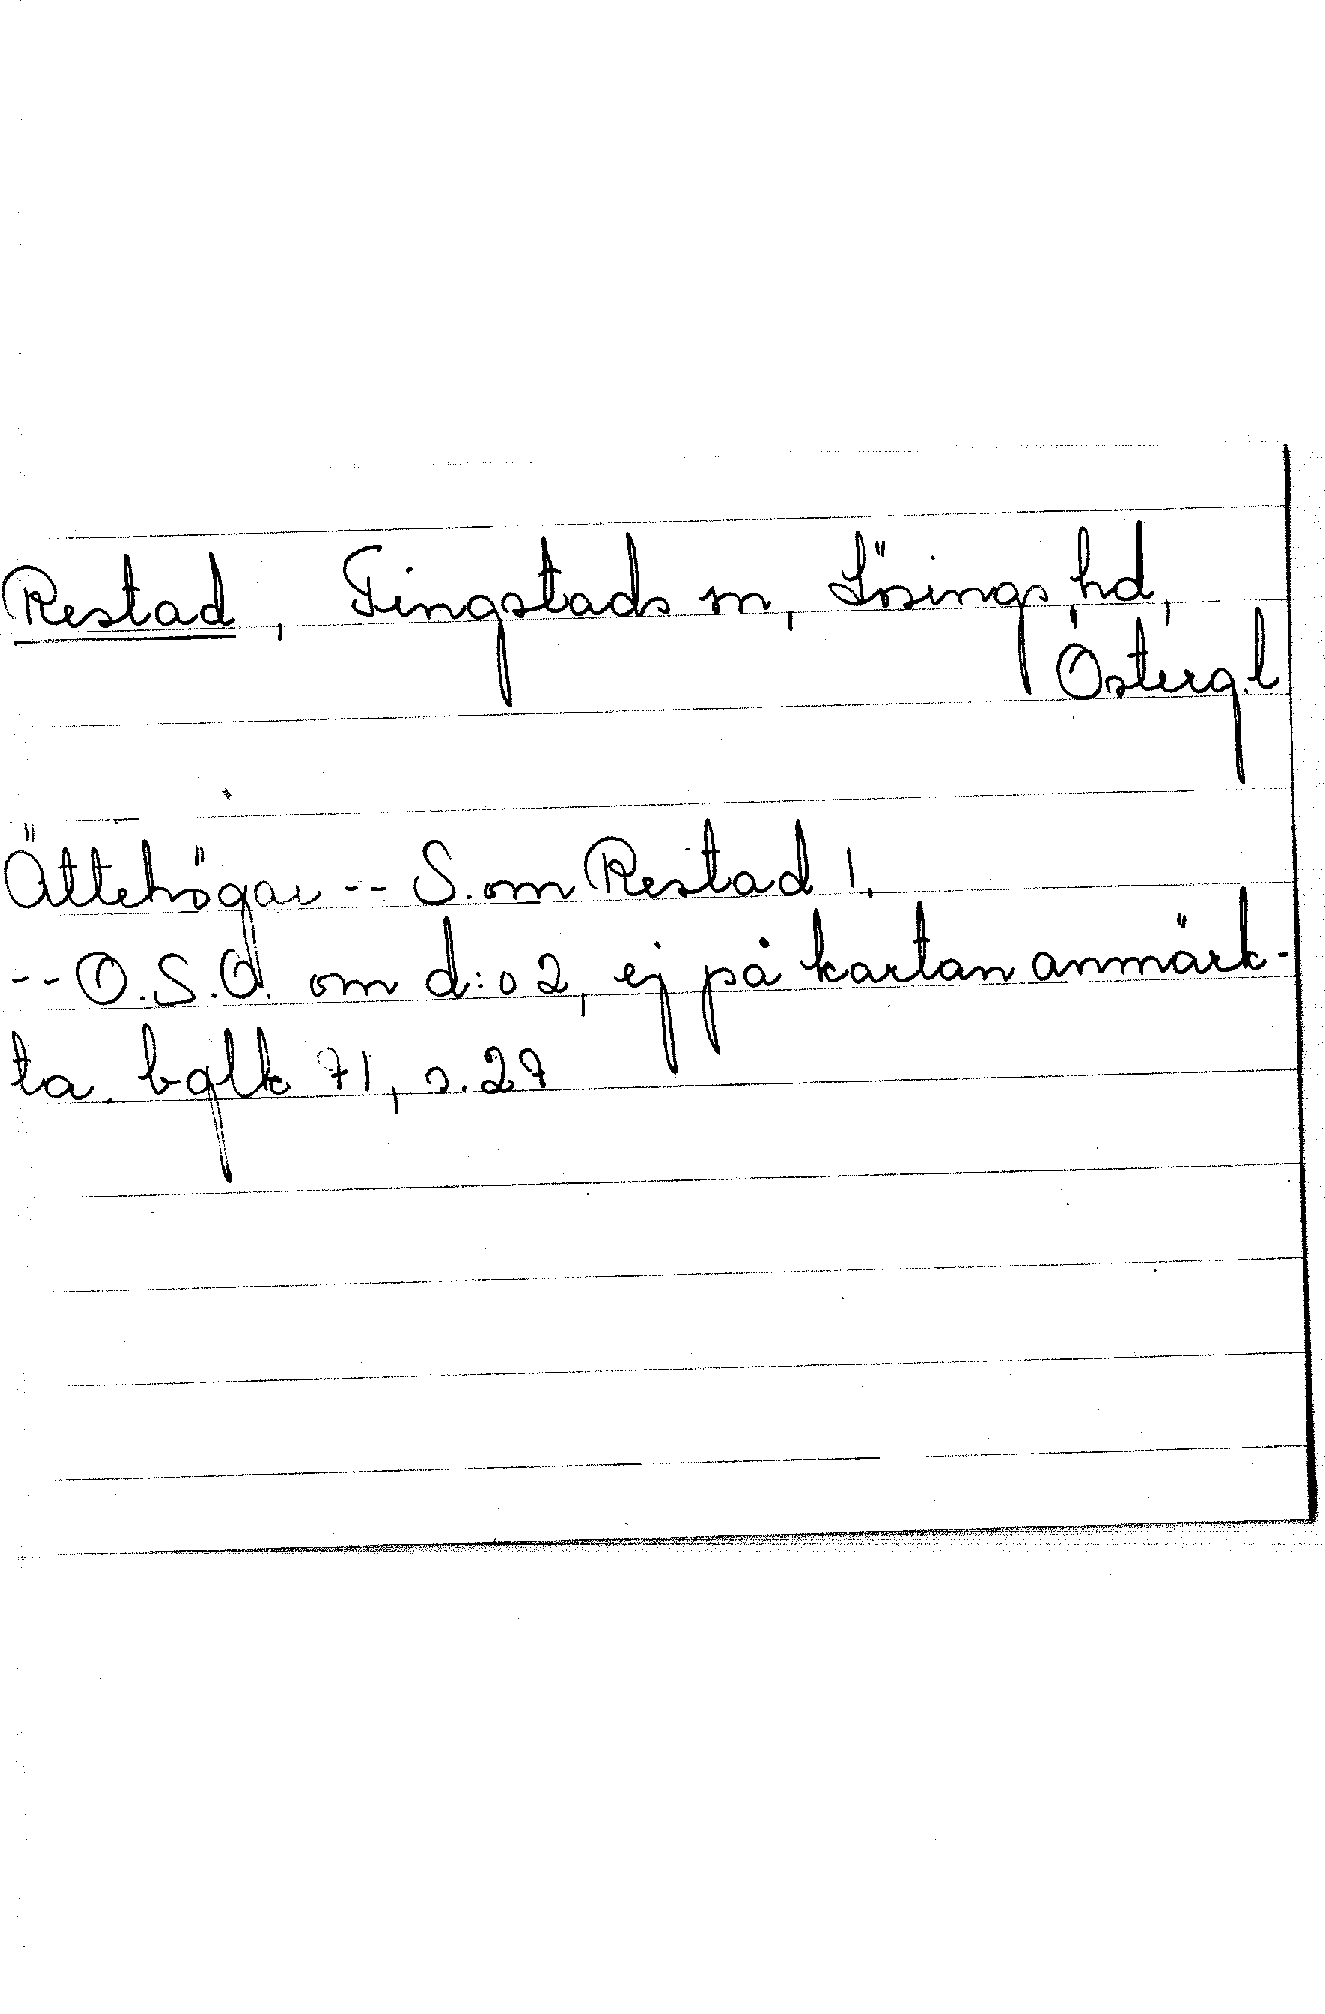 Restad, Tingstads sn, Lösings hd,
Österg.l
Ättehögar -- S. om Restad 1.
-- O.S.O. om d:o 2, ej på kartan anmärk-
ta. bglk 71, s. 27